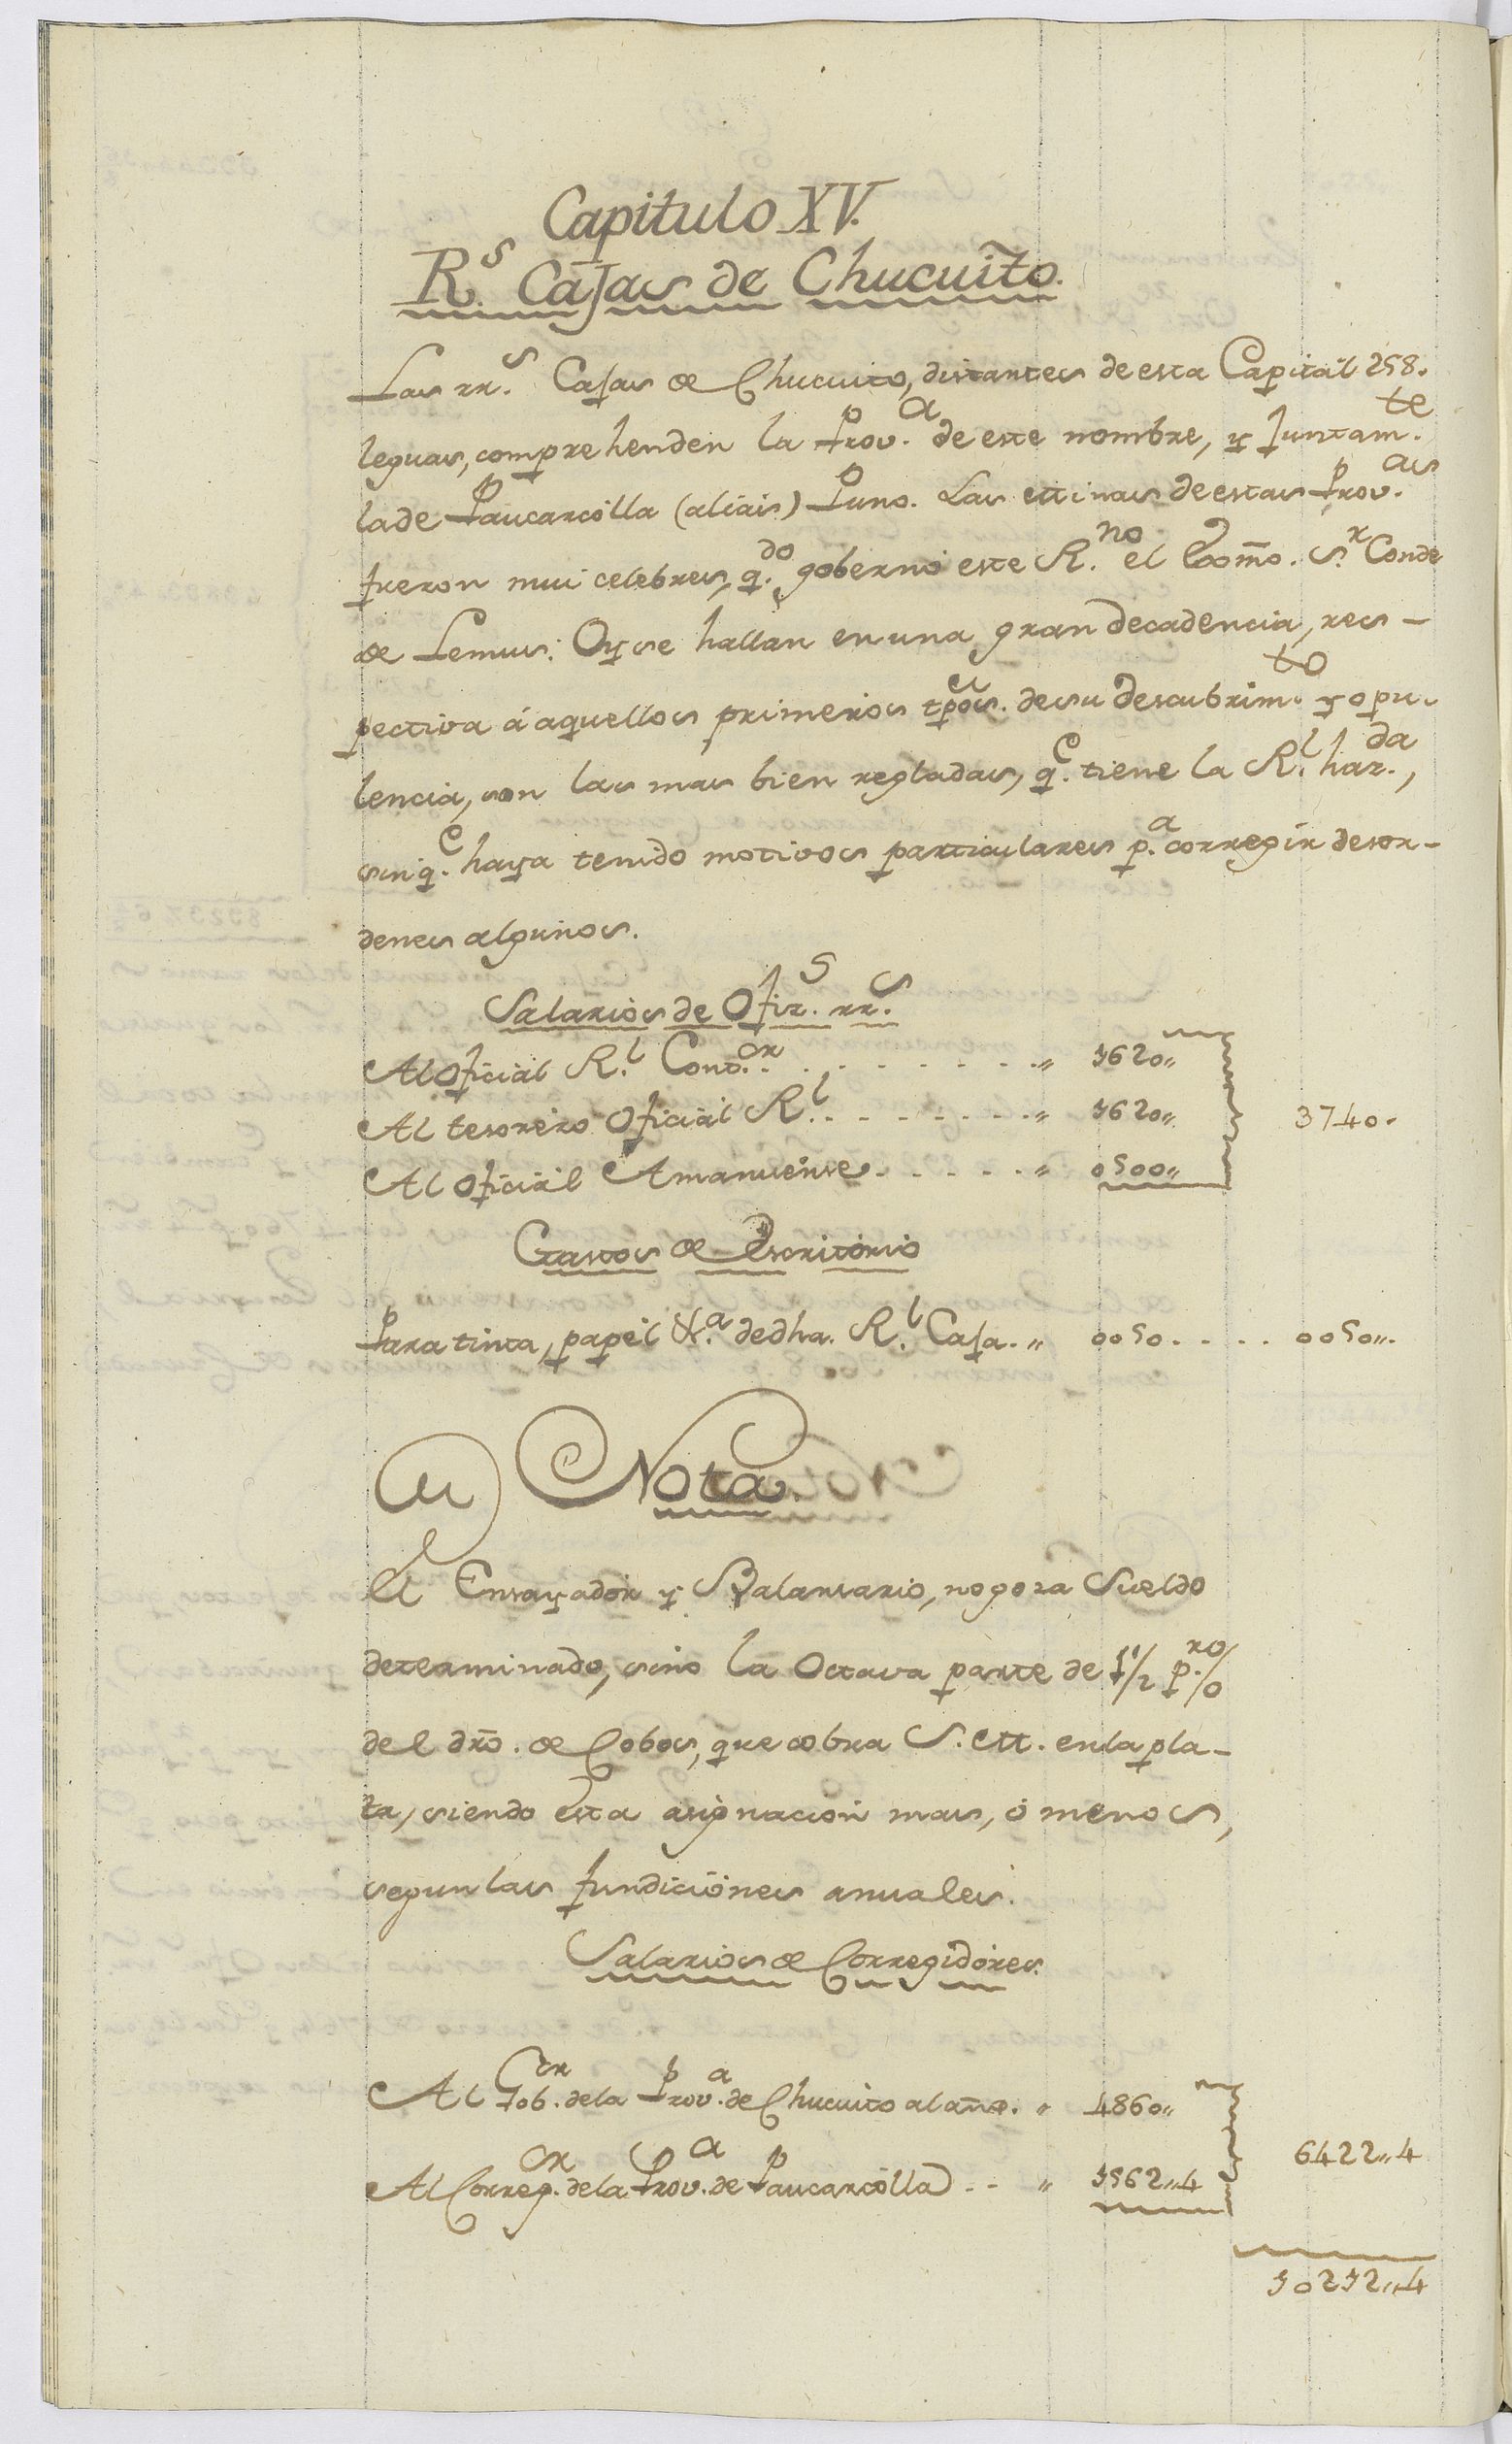 Capitulo XV.
R.s Cajas de Chucuito.
Las rr.s Cajas de Chucuito, distantes de esta Capital 258.
leguas, comprehenden la Prov.a de este nombre, y juntam.te
la de Paucarcolla (aliàs) Puno. Las Minas de estas Prov.as
fueron mui celebres, q.do gobernò este R.no el Exc̃mo. S.r Conde
de Lemus: Oy se hallan en una gran decadencia, res-
pectiva á aquellos primeros tpos. de su descubrim.to y opu-
lencia, son las mas bien regladas, q.e tiene la R.l haz.da,
sin q.e haya tenido motivos particulares p.a corregir desor-
denes algunos.
Salarios de Ofiz.s rr.s
Al Oficial R.l Cont.or . . . . . . . . " 1620"
Al tesorero Oficial R.l . . . . . . . . " 1620" 3740.
Al Oficial Amanuense . . . . . . " 0500"
Gastos de Escritorio
Para tinta, papel &.a de dha. R.l Caja. " 0050 . . . . 0050".
Nota.
El Ensayador y Balansario, no goza Sueldo
determinado, sino la Octava parte de 1 1/2 p.r %
del dr̃o. de Cobos, que cobra S. M. en la pla-
ta, siendo esta asignacion mas, ò menos,
segun las fundiciones anuales.
Salarios de Corregidores.
Al Gob.or de la Prov.a de Chucuito al año. " 4860"
6422"4
Al Correg.or de la Prov.a de Paucarcolla . . " 1562"4
10212"4